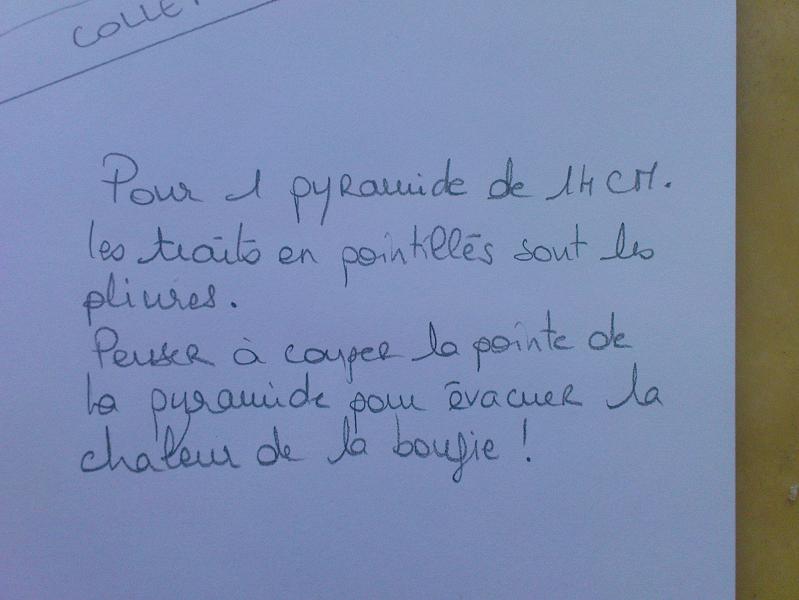 COLLE
Pour 1 pyramide de 14 CM.
les traits en pointillés sont les
pliures.
Penser à couper la pointe de
la pyramide pour évacuer la
chaleur de la bougie !